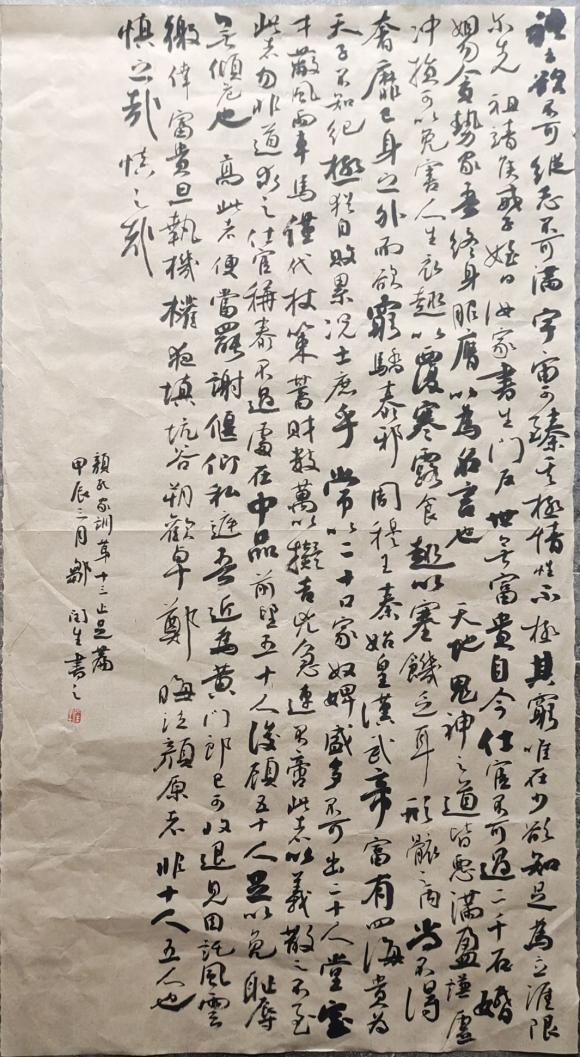 禮云欲不可縱志不可滿宇宙可臻其極情性不極其窮唯在少欲知足為立涯限
尔先祖靖侯戒子姪曰汝家書生门户世無富貴自今仕宦不可過二千石婚
姻勿貪勢家吾終身服膺以為名言也天地鬼神之道皆惡滿盈謙虛
冲損可以免害人生衣趣以覆寒露食趣以塞饑乏耳形骸之内尚不得
奢靡已身之外而欲窮驕泰邪周穆王秦始皇漢武帝富有四海貴為
天子不知紀極猶自敗累況士庶乎常以二十口家奴婢盛多不可出二十人堂室
才蔽風雨車馬僅代杖策蓄財數萬以擬吉凶急速不嗇此者以義散之不至
此者勿非道求之仕宦稱泰不過處在中品前望五十人後顧五十人足以免耻辱
無傾危也高此者便當罷謝偃仰私庭吾近為黄门郎已可收退見因託風雲
徼倖富貴旦執機權夜填坑谷朔歡卓鄭晦泣顏原者非十人五人也
慎之哉慎之哉
顏氏家訓第十三止足篇
甲辰三月鄒闰生書之